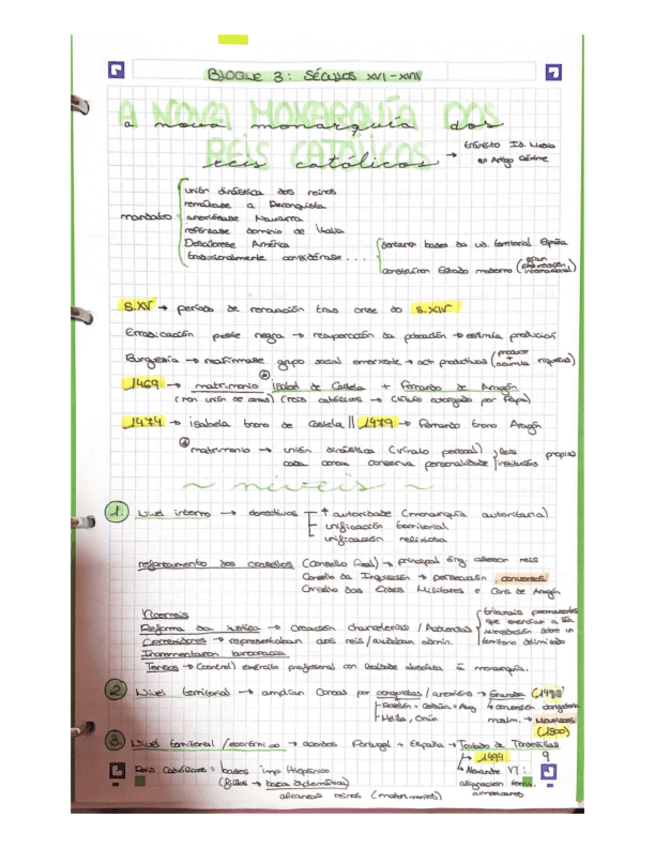 BLOQUE 3: SÉCULOS XVI-XVII
A NOVA MONARQUÍA DOS
a nova monarquía dos
REIS CATÓLICOS
reis católicos → tránsito Id. Media
Antigo Réxime
mandato
unión dinástica dos reinos
remátase a Reconquista
anexiónase Navarra
refórzase dominio de Italia
Descóbrese América
tradicionalmente considérase...
sentaron bases da ud. territorial España
construíron Estado moderno (gran internacional)
S.XV → período de renovación tras crise do S.XIV
Erradicación peste negra → recuperación da poboación → estimula producción
Burguesía → reafírmase grupo social emerxente → act. productivas (produce + acumula riquezas)
1469 → matrimonio Isabel de Castela + Fernando de Aragón
(non unión de ) (reis católicos → título otorgado por Papa)
1474 → isabela trono de castela || 1479 → Fernando trono Aragón
matrimonio → unión dinástica (vínculo persoal)
cada coroa conserva personalidade
leis
institucións
propias
~ niveis ~
1. Nivel interno → obxectivos
↑ autoridade (monarquía autoritaria)
unificación territorial
unificación relixiosa
reforzamento dos consellos (Consello Real) → principal órg. asesor reis
Consello da Inquisición → persecución conversos
Consello das Ordes Militares e Coroa de Aragón
Vicerreis
Reforma da xustiza → creación chancelerías / Audiencias
tribunais permanentes
que exercían a súa
xurisdición sobre un
territorio delimitado
Correxidores → representaban aos reis / axudaban admin.
Incrementaron burocracia
Tercios → (control) exército profesional con lealdade absoluta á monarquía.
2 Nivel territorial → amplían Coroas por conquistas / anexións → Granada (1492)
Melilla, Orán
conversión obrigatoria
musulm. → Mouriscos
(1500)
3 Nivel territorial / económico → acordos Portugal + España → Tratado de Tordesillas
1494
Alexandre VI:
asignación terr.
americanos
Reis Católicos: bases imp. Hispánico
(fillos → baza diplomática)
alianzas reinos (matrimonios)